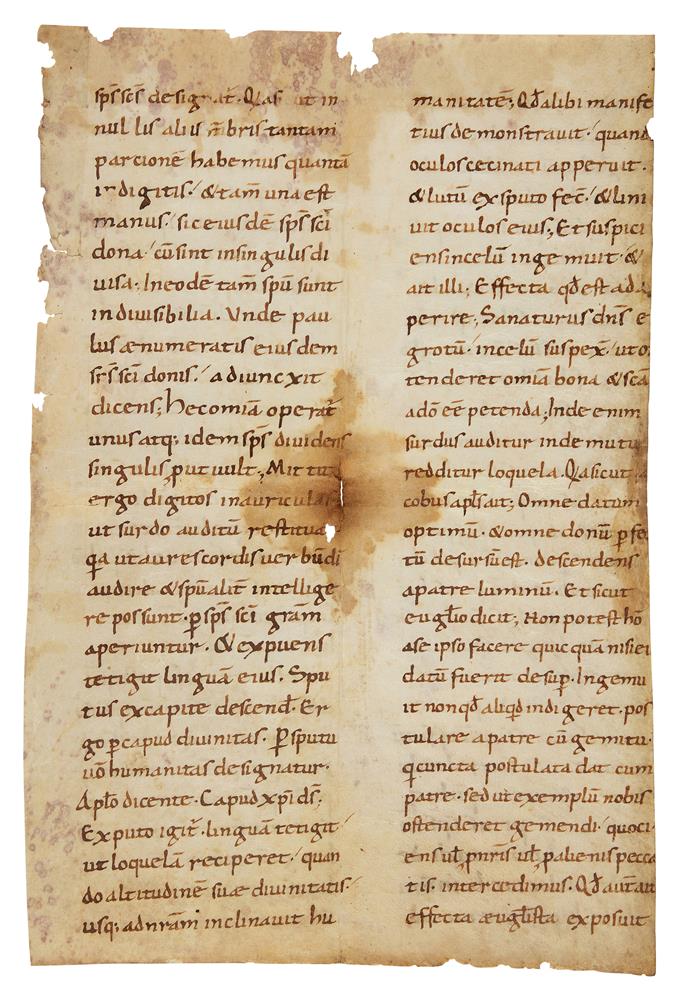 sp̄s sc̄s desig at̄. Q
nullis aliis m̄bris tantam
parcionē habemus quantā
in digitis. & tam̄ una est
manus. sic eiusdē sp̄s sc̄i
dona. cū sint in singulis di
uisa. In eodē tam̄ sp̄u sunt
indiuisibilia. Unde pau
lus ænumeratis eiusdem
donis. adiuncxit
dicens; hec om̄ia operat̄
unus atq; idem sp̄s diuidens
singulis ꝓut uult; Mittit
ergo digitos in auriculas
ut surdo auditū restitua
q̄a ut aures cordis uerbū di
audire & sp̄ualit̄ intellige
re possunt. ꝑ sp̄s sc̄i gr̄am
aperiuntur. & expuens
tetigit linguā eius. Spu
tus ex capite descend̄. Er
go ꝑ capud diuinitas. Ꝑ sputū
uō humanitas designatur.
Aplo dicente. Capud xp̄i d̄s;
Ex puto igit̄. linguā tetigit
ut loquelā reciperet. quan
do altitudinē suæ diuinitatis.
usq; ad nr̄am inclinauit hu
manitatē; Qd̄ alibi manife
tius demonstrauit. quand
oculos ceci nati apperuit.
& lutū ex sputo fec̄. & lini
uit oculos eius; Et suspici
ens in celū ingemuit. &
ait illi; Effecta qd̄ est ad
perire; Sanaturus dn̄s e
grotū. in celū suspex̄. ut o
tenderet om̄ia bona & sca
ad̄o ē̄e petenda; Inde enim
surdus auditur inde mutu
redditur loquela. Q̄a sicut
cobus apl̄s ait; Omne datum
optimū. & omne donū ꝑfe
tū desursū est. descendens
a patre luminū. Et sicut
euḡlio dicit; Non potest ho
a se ipso facere quicquā nisi ei
datū fuerit desup̄. Ingemu
it non qd̄ aliqd̄ indigeret. pos
tulare a patre cū gemitu.
q̄ cuncta postulata dat cum
patre. sed ut exemplū nobis
ostenderet gemendi. quoci
ens ul̄ pn̄ris ul̄ ꝑ alienis pecca
tis. intercedimus. Qd̄ aut̄
effecta æuḡlista exposuit